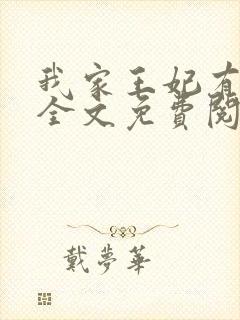 我家王妃有
全文免費閱
戴夢華